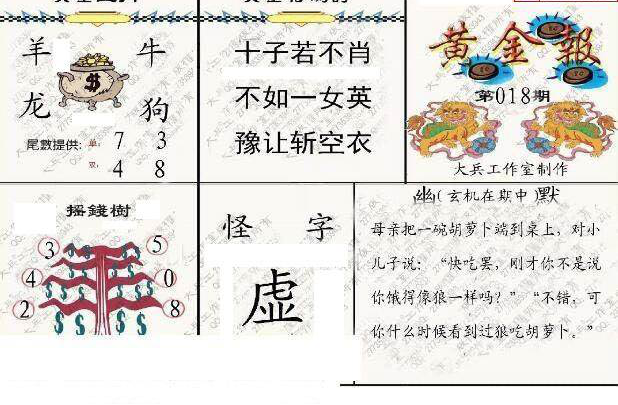 羊 牛
龙 狗
$
尾數提供: 单: 7 3
双: 4 8
十子若不肖
不如一女英
豫让斩空衣
黄金報
第018期
大兵工作室制作
摇錢樹
3 5
4 0
2 8
怪 字
虚
幽(玄机在期中)默
母亲把一碗胡萝卜端到桌上，对小
儿子说：“快吃罢，刚才你不是说
你饿得像狼一样吗？”“不错，可
你什么时候看到过狼吃胡萝卜。”